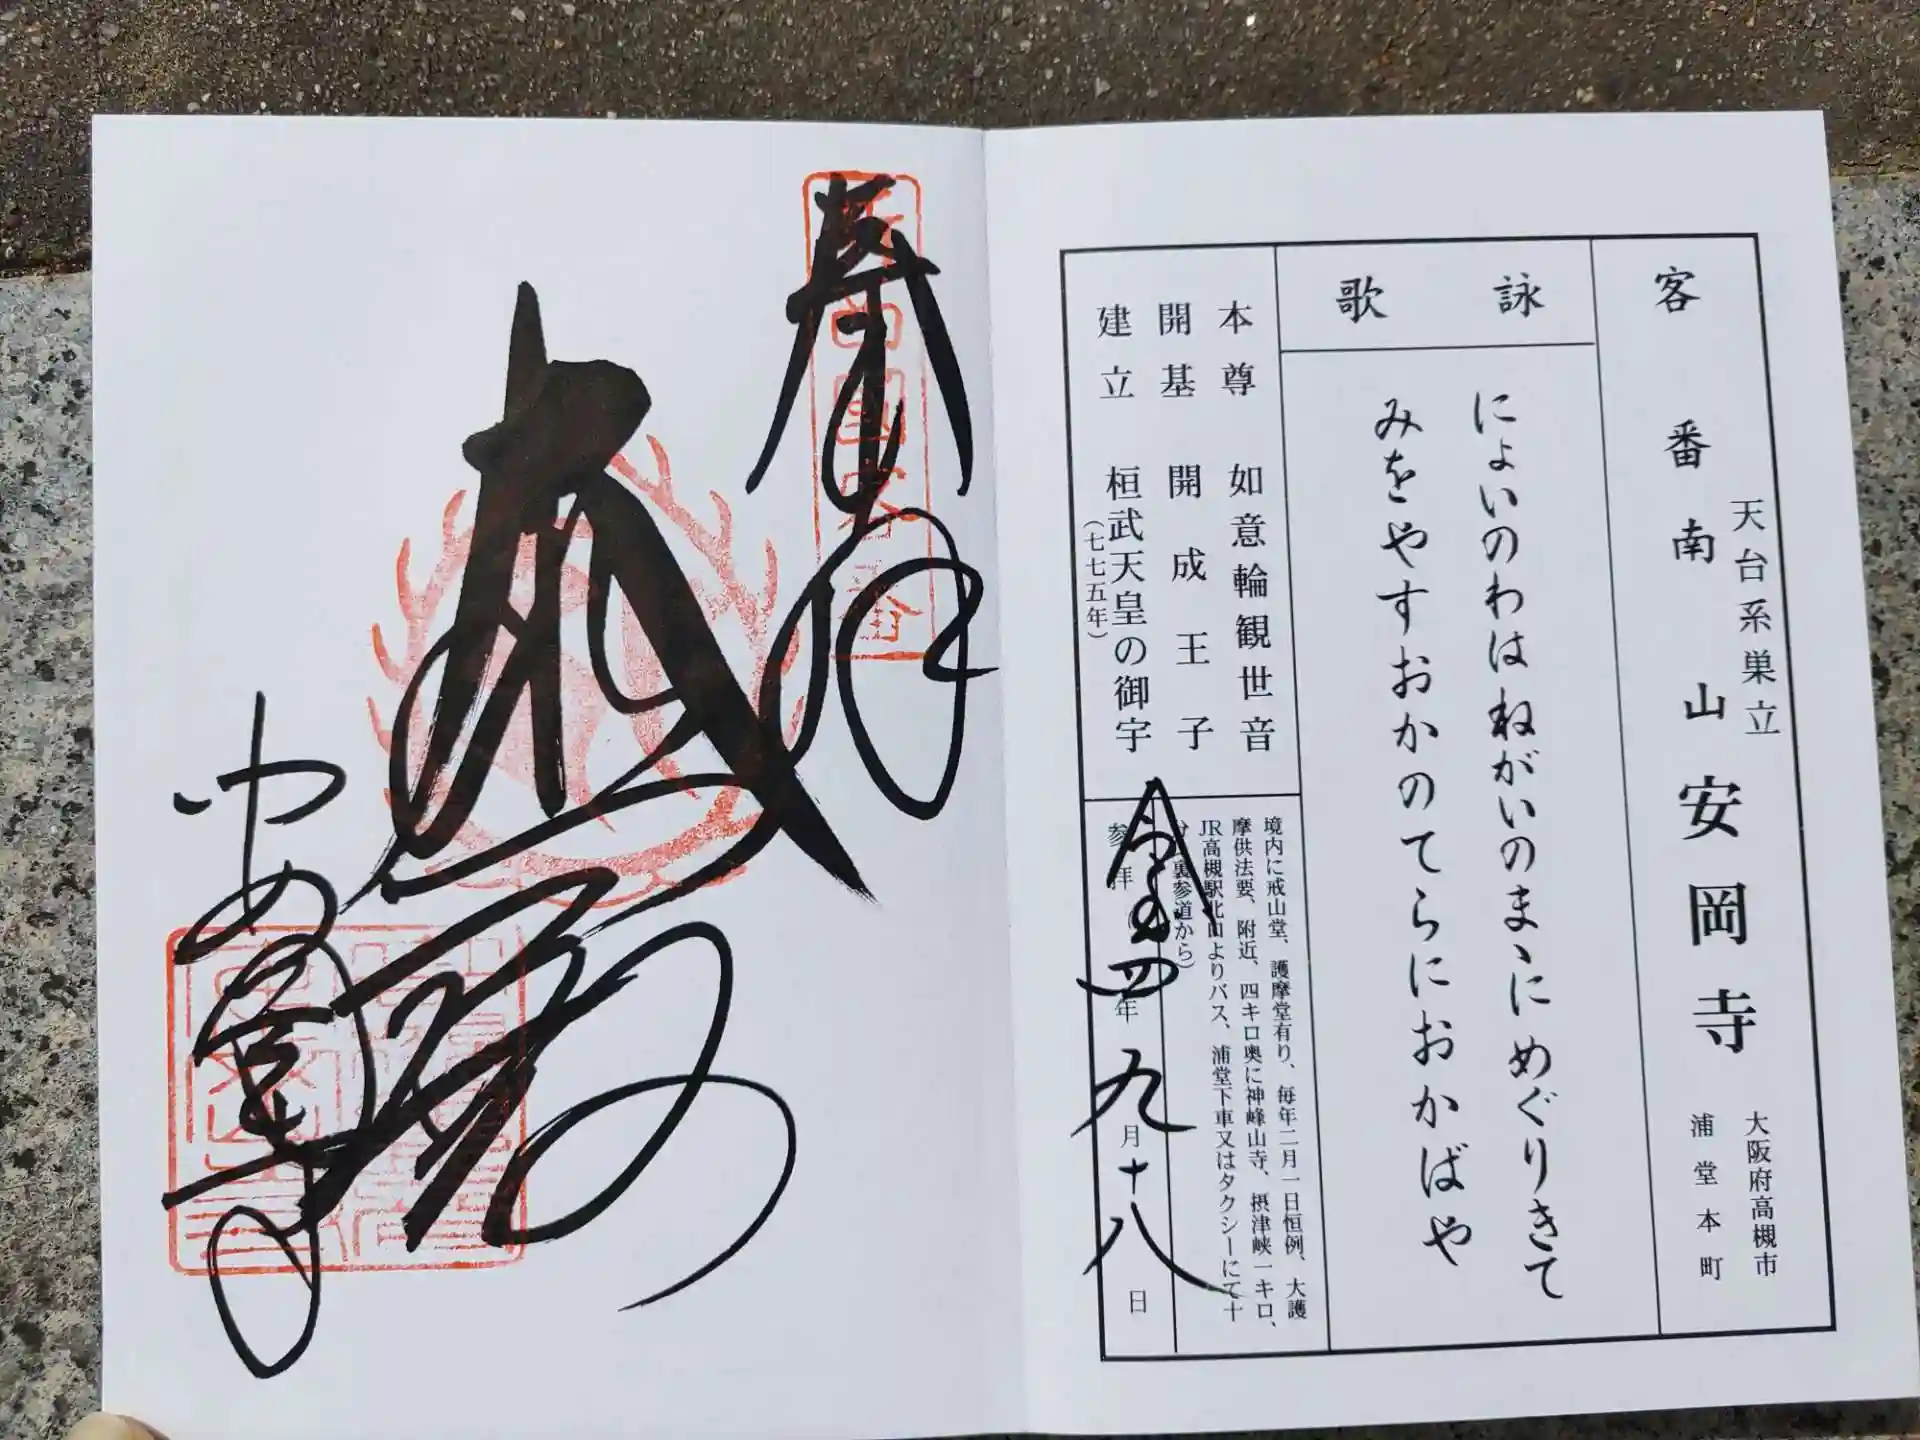 客番 南山 安岡寺
天台系巣立
大阪府高槻市
浦堂本町
詠歌
にょいのわはねがいのまゝにめぐりきて
みをやすおかのてらにおかばや
本尊 如意輪観世音
開基 開成王子
建立 桓武天皇の御宇
(七七五年)
境内に戒山堂、護摩堂有り、毎年二月一日恒例、大護
摩供法要、附近、四キロ奥に神峰山寺、摂津峡一キロ、
JR高槻駅北口よりバス、浦堂下車又はタクシーにて十
分(裏参道から)
参拝 令和四年九月十八日
奉拝
安岡寺